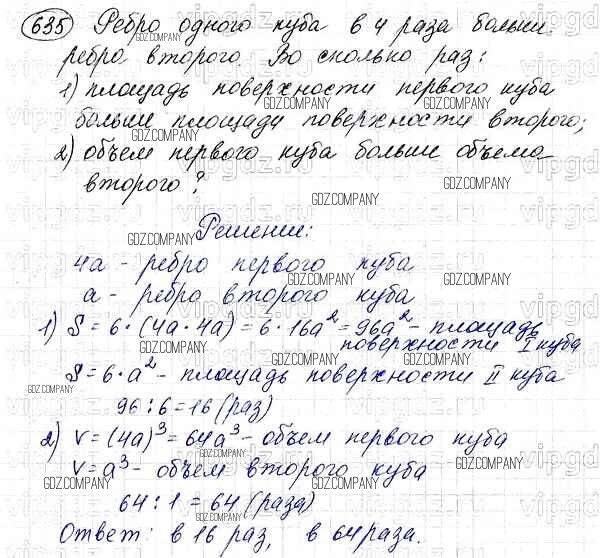 635 Ребро одного куба в 4 раза больше
ребро второго. Во сколько раз:
1) площадь поверхности первого куба
больше площади поверхности второго;
2) объем первого куба больше объема
второго?
Решение:
4а - ребро первого куба
а - ребро второго куба
1) S = 6 · (4а · 4а) = 6 · 16а² = 96а² - площадь
поверхности I куба
S = 6 · а² - площадь поверхности II куба
96 : 6 = 16 (раз)
2) V = (4а)³ = 64а³ - объем первого куба
V = а³ - объем второго куба
64 : 1 = 64 (раза)
Ответ: в 16 раз, в 64 раза.